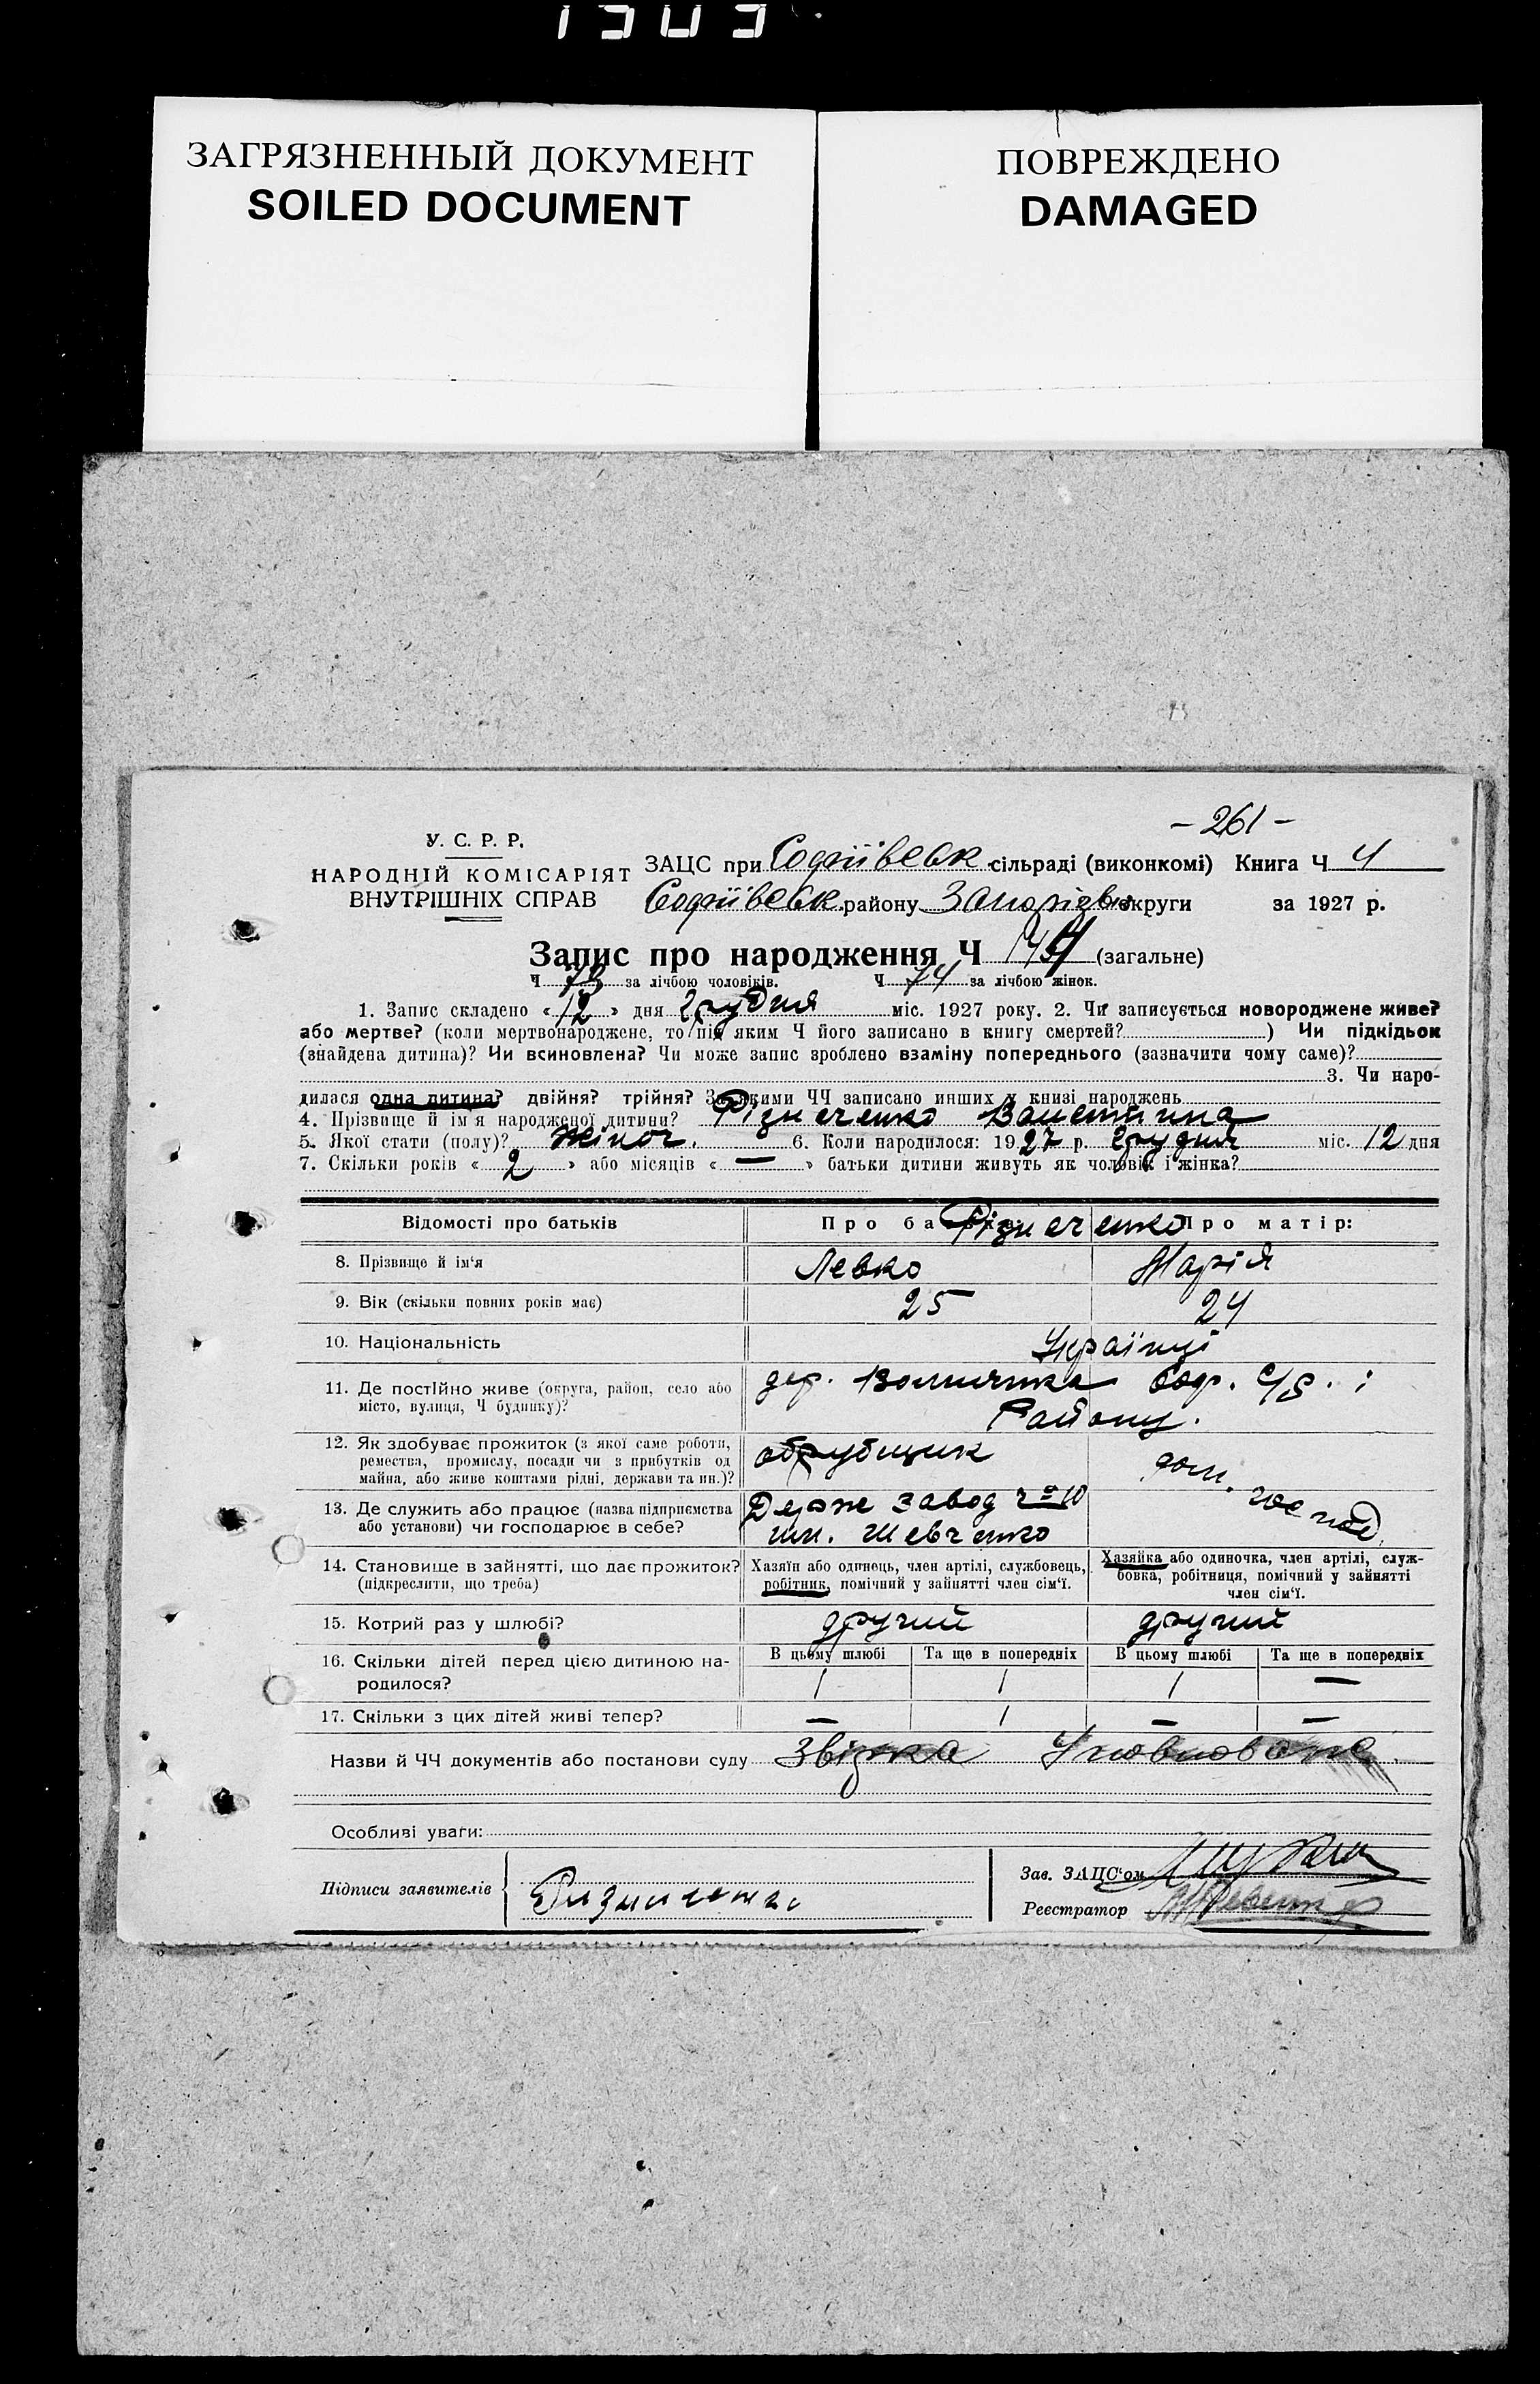 ЗАГРЯЗНЕННЫЙ ДОКУМЕНТ
SOILED DOCUMENT
ПОВРЕЖДЕНО
DAMAGED
- 261 -
У. С. Р. Р.
НАРОДНІЙ КОМІСАРІЯТ
ВНУТРІШНІХ СПРАВ
ЗАЦС при Софиївськ сільраді (виконкомі) Книга Ч 4
Софиївськ району Запорізьк округи за 1927 р.
Запис про народження Ч 147 (загальне)
Ч 73 за лічбою чоловіків. Ч 74 за лічбою жінок.
1. Запис складено « 12 » дня Грудня міс. 1927 року. 2. Чи записується новороджене живе?
або мертве? (коли мертвонароджене, то під яким Ч його записано в книгу смертей? ) Чи підкідьок
(знайдена дитина)? Чи всиновлена? Чи може запис зроблено взаміну попереднього (зазначити чому саме)?
3. Чи наро-
дилася одна дитина? двійня? трійня? За якими ЧЧ записано инших у книзі народжень
4. Прізвище й ім'я народженої дитини? Різниченко Валентина
5. Якої стати (полу)? жіноч. 6. Коли народилося: 1927 р. Грудня міс. 12 дня
7. Скільки років « 2 » або місяців « — » батьки дитини живуть як чоловік і жінка?
Відомості про батьків
Про батька: Про матір:
Різниченко
8. Прізвище й ім'я Левко Марія
9. Вік (скільки повних років має) 25 24
10. Національність Українці
11. Де постійно живе (округа, район, село або
місто, вулиця, Ч будинку)?
дер. Соф. с/р. і
Району.
12. Як здобуває прожиток (з якої саме роботи,
ремества, промислу, посади чи з прибутків од
майна, або живе коштами рідні, держави та ин.)?
обрубщик дом. господ.
13. Де служить або працює (назва підприємства
або установи) чи господарює в себе?
Держ завод ч° 10
им. Шевченко
14. Становище в зайнятті, що дає прожиток?
(підкреслити, що треба)
Хазяїн або одинець, член артілі, службовець,
робітник, помічний у зайнятті член сім'ї.
Хазяйка або одиночка, член артілі, служ-
бовка, робітниця, помічний у зайнятті
член сім'ї.
15. Котрий раз у шлюбі? другий другий
16. Скільки дітей перед цією дитиною на-
родилося?
В цьому шлюбі Та ще в попередніх В цьому шлюбі Та ще в попередніх
1 1 1 —
17. Скільки з цих дітей живі тепер? — 1 — —
Назви й ЧЧ документів або постанови суду
Особливі уваги:
Підписи заявителів
Зав. ЗАЦС'ом
Реєстратор